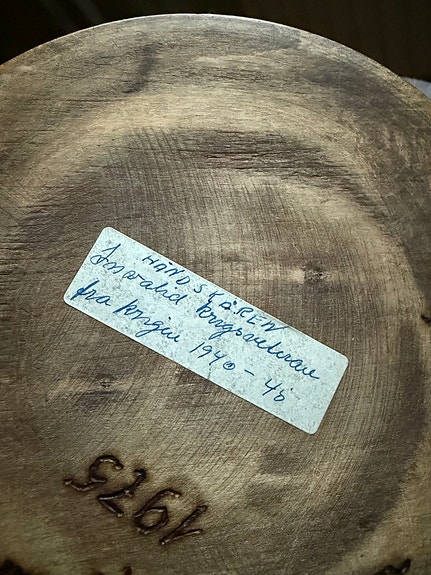 HÄNDSKÅREN
Invalid krigsveteran
fra krigen 1940-45
1975